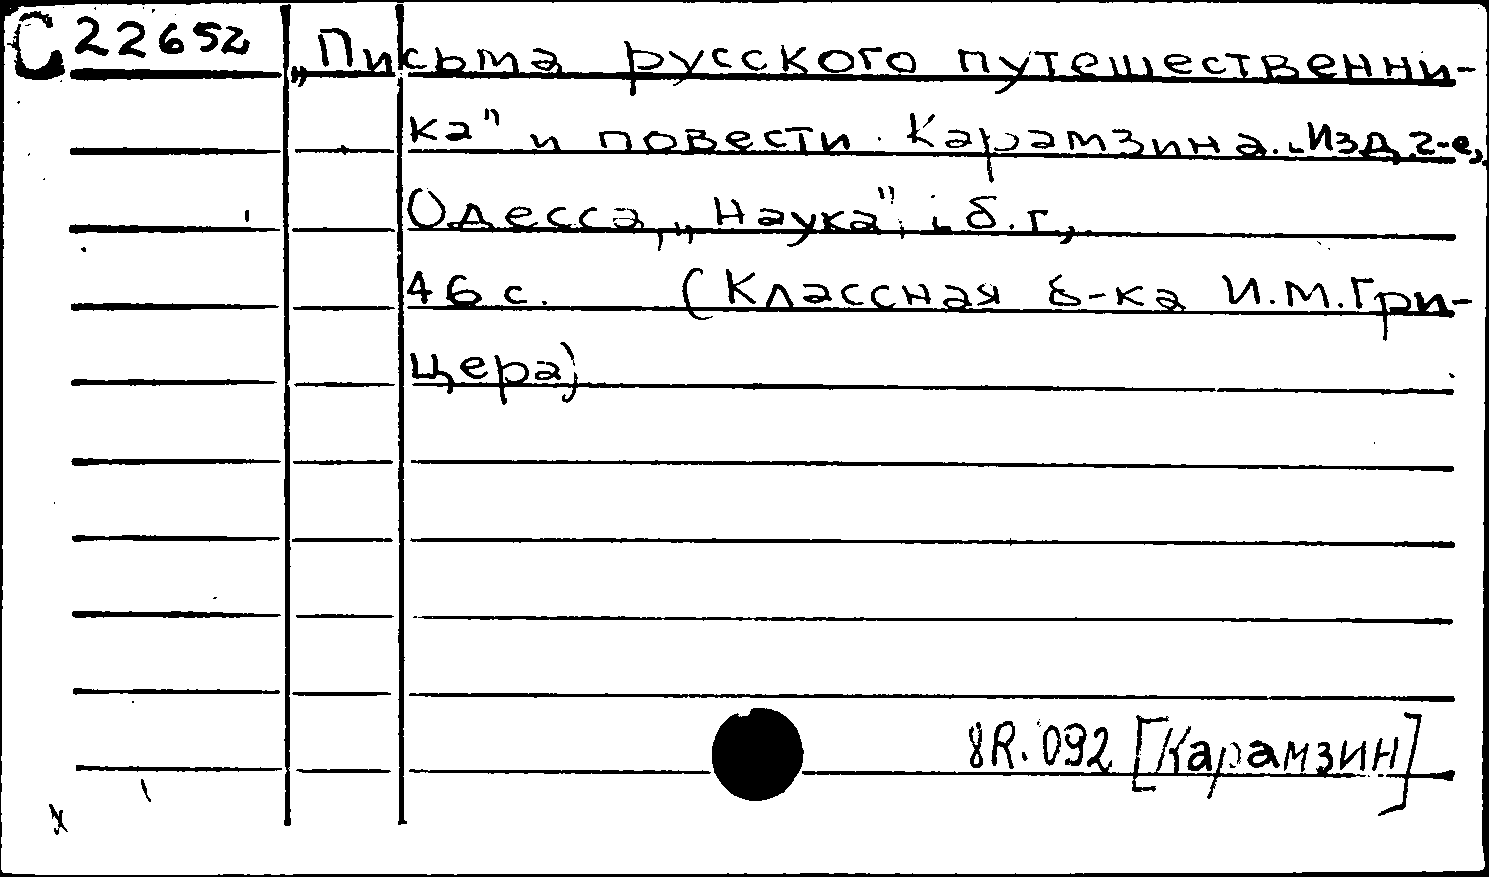 С 22652 „Письма русского путешественни-
ка" и повести Карамзина. Изд. 2-е,
Одесса, „Наука", б.г.,
46 с. (Классная б-ка И.М.Гри-
цера)
8R.092 [Карамзин]